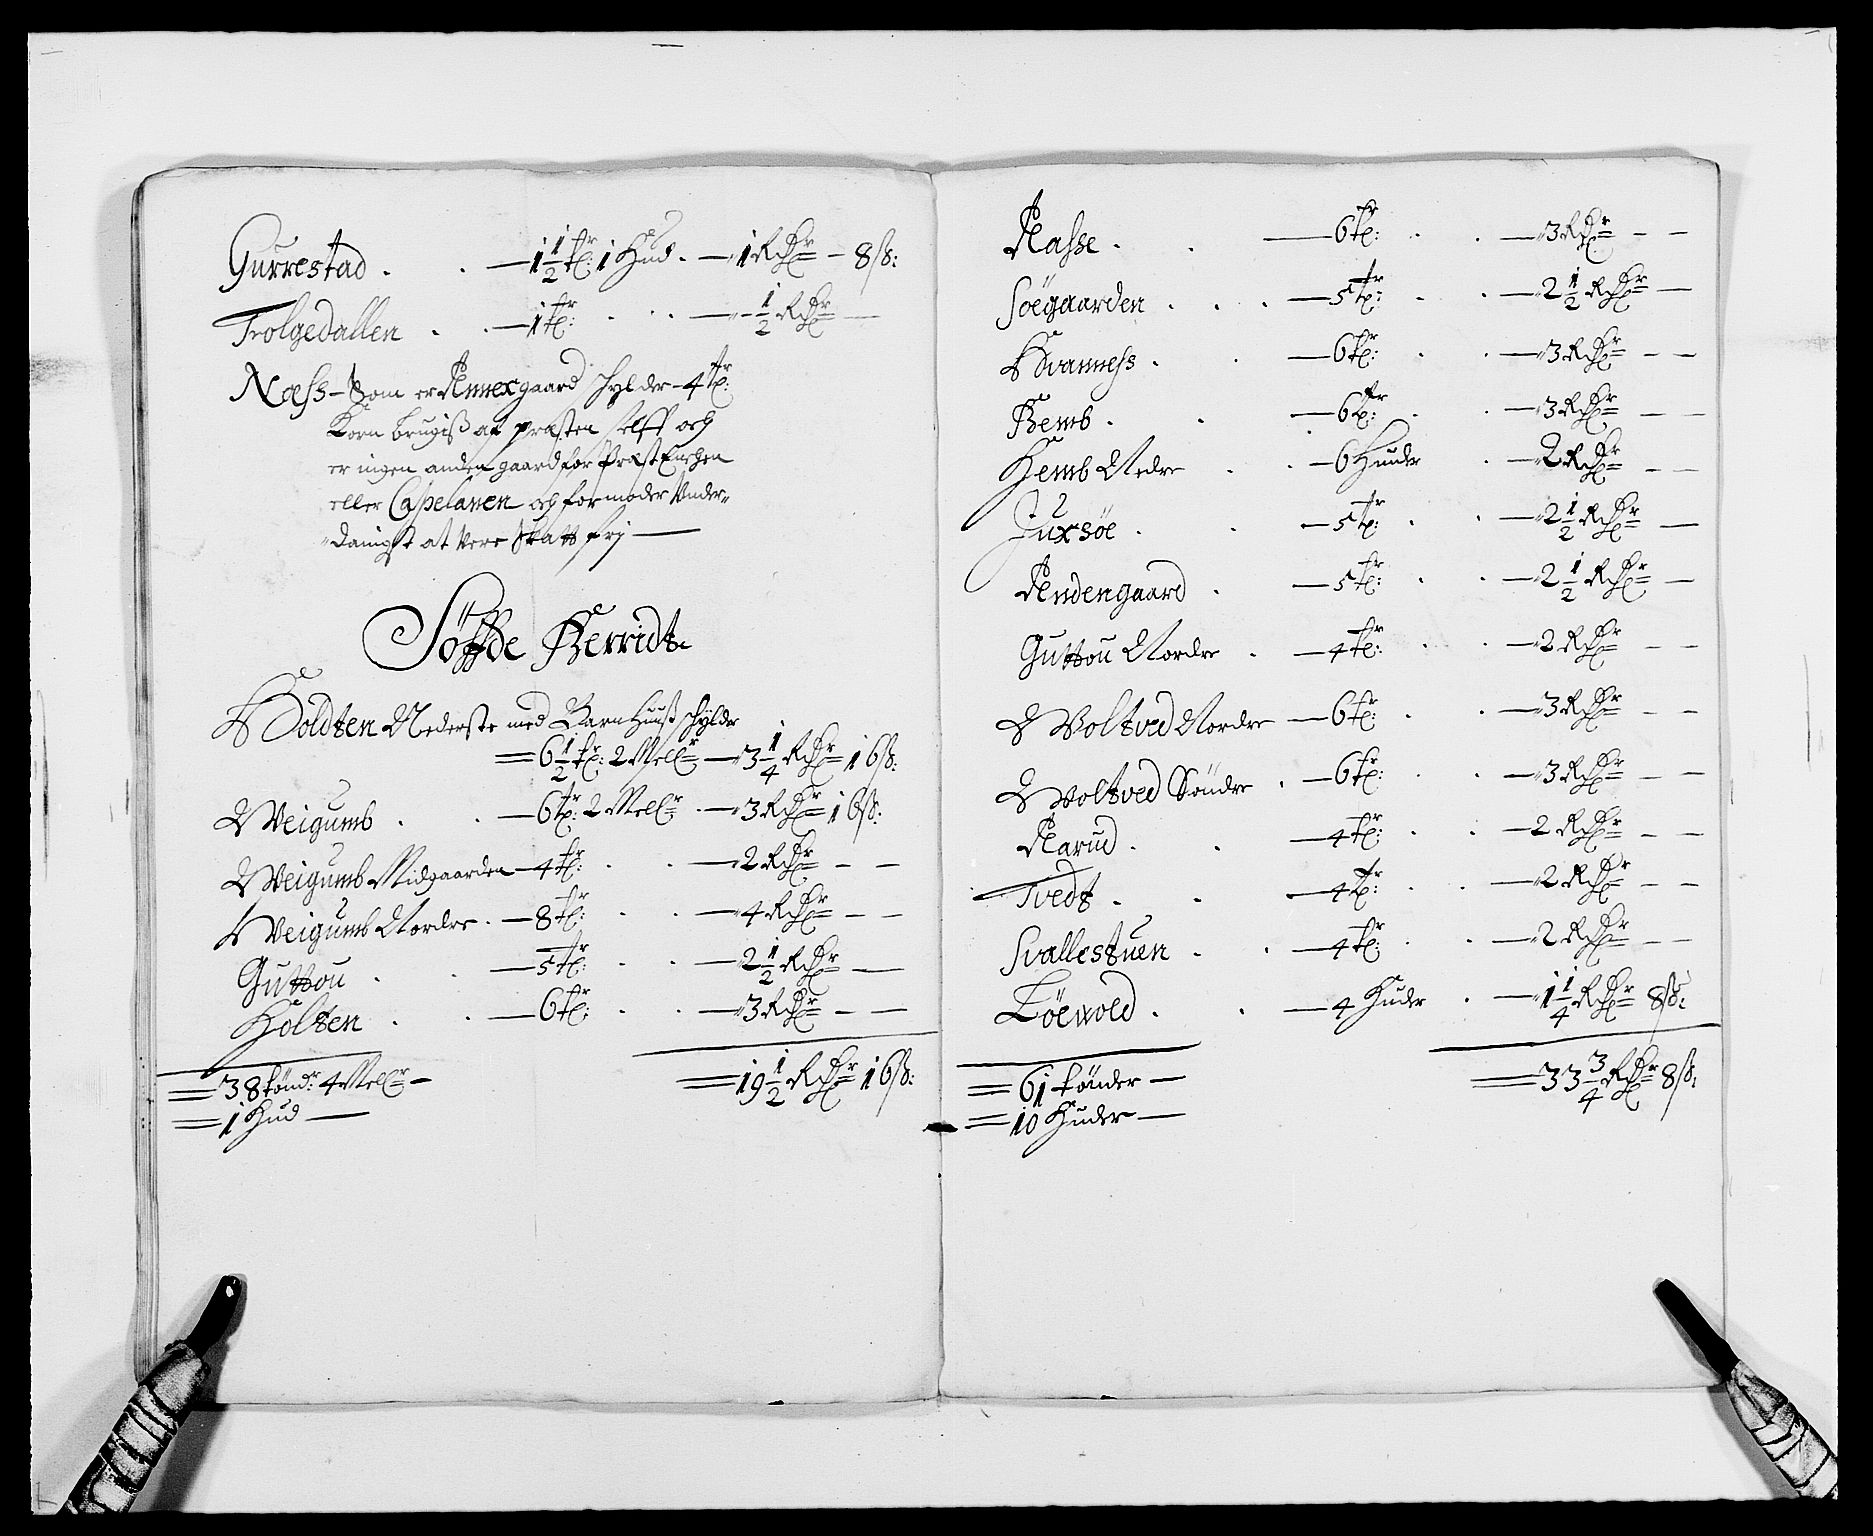 Gurrestad . . — 1 1/2 tr: 1 Hud. — 1 Rdr — 8 ß:
Trolgedallen . . — 1 tr: . . . — 1/2 Rdr —
Næss – Som er Annexgaard schylder – 4 tr:
Korn brugis af præsten selff och
er ingen anden gaard for Præst Enchen
eller Capelanen och formoder Under-
danigst at vere skatt frj —
Söffde Herridt
Holdten Nederste med BarnHuuss schylder
= 6 1/2 tr: 2 Mellr — 3 1/4 Rdr 16 ß:
Weigumb . . — 6 tr: 2 Mellr . — 3 Rdr 16 ß:
Weigumb Midgaarden — 4 tr: . . — 2 Rdr — —
Weigumb Nordre . — 8 tr: . . — 4 Rdr — —
Guttou . . — 5 tr: . . — 2 1/2 Rdr —
Holten . . — 6 tr: . . — 3 Rdr — —
= 38 töndr: 4 Mellr — = 19 1/2 Rdr 16 ß:
= 1 Hud —
Aasse . . — 6 tr: . . — 3 Rdr — —
Söegaarden . . . — 5 tr: . . — 2 1/2 Rdr —
Kvanness . . — 6 tr: . . — 3 Rdr — —
Hemb . . — 6 tr: . . — 3 Rdr — —
Hemb Nedre . . — 6 Huder . — 2 Rdr — —
Juxsöe . . — 5 tr: . . — 2 1/2 Rdr —
Andengaard . — 5 tr: . . — 2 1/2 Rdr —
Guttou Nordre . — 4 tr: . . — 2 Rdr — —
Woltved Nordre — 6 tr: . . — 3 Rdr — —
Woltved Söndre . — 6 tr: . . — 3 Rdr — —
Aarud . . — 4 tr: . . — 2 Rdr — —
Tvedt . . — 4 tr: . . — 2 Rdr — —
Svallestuen . . — 4 tr: . . — 2 Rdr — —
Löewold . . — 4 Huder . — 1 1/4 Rdr 8 ß:
= 61 tönder — = 33 3/4 Rdr 8 ß:
= 10 Huder —